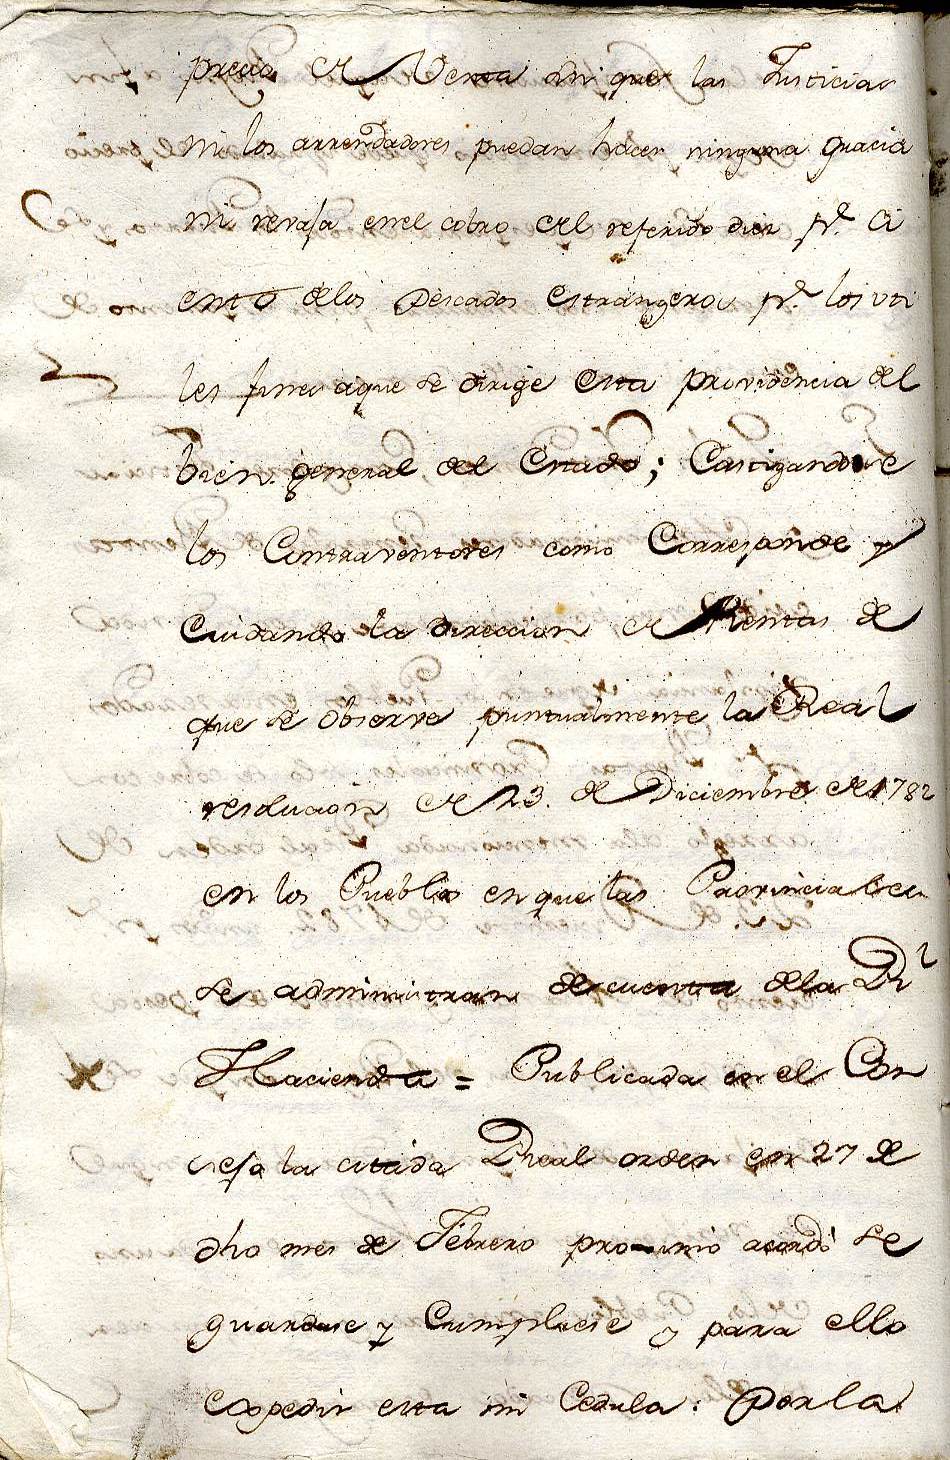 precio de Venta sin que las Justicias
ni los arrendadores puedan hacer ninguna gracia
ni revaja en el cobro del referido diez pr. Ci
ento delos pescados estrangeros pr. los uti
les fines aque se dirige esta providencia del
bien general del Estado; Castigandose
los Contraventores como Corresponde y
Cuidando la direccion de Rentas de
que se observe puntualmente la Real
resolucion de 23. de Diciembre de 1782
en los Pueblos en que las Provinciales
se administran de cuenta dela Rl
Hacienda = Publicada en el Con
sejo la citada Real orden en 27 de
dho mes de Febrero proximo acordó se
guardase y Cumpliese y para ello
expedir esta mi Cedula: Por la